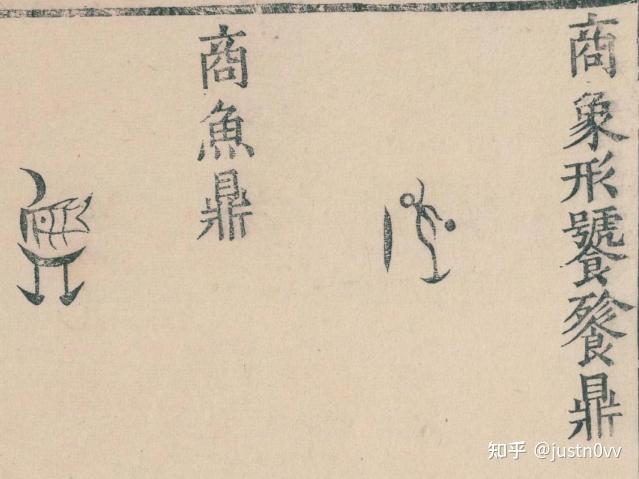 商象形饕餮鼎
商魚鼎
知乎 @justn0vv